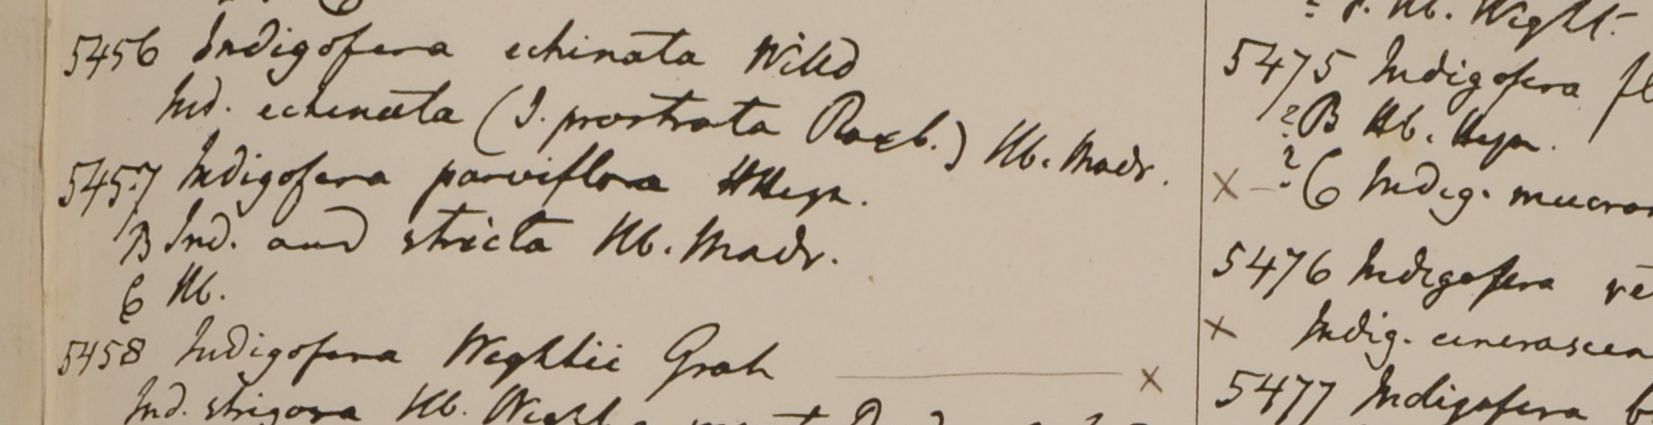 5456 Indigofera echinata Willd
Ind. echinata (I. prostrata Roxb.) Hb. Madr.
5457 Indigofera parviflora HHeyn.
B Ind. and stricta Hb. Madr.
C Hb.
5458 Indigofera Wightii Grah x
Ind. strigosa Hb. Wight
? Hb. Wight.
5475 Indigofera fl
? B Hb. Heyn.
x - ? C Indig. mucron
5476 Indigofera re
x Indig. cinerascen
5477 Indigofera b